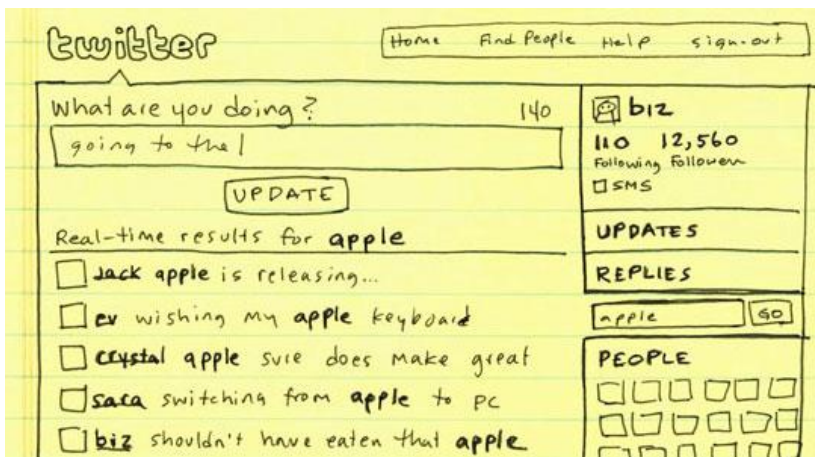 twitter
Home Find People Help sign-out
What are you doing? 140
going to the
UPDATE
Real-time results for apple
Jack apple is releasing...
ev wishing my apple keyboard
crystal apple sure does make great
sara switching from apple to PC
biz shouldn't have eaten that apple
biz
110 12,560
Following Followers
SMS
UPDATES
REPLIES
apple GO
PEOPLE